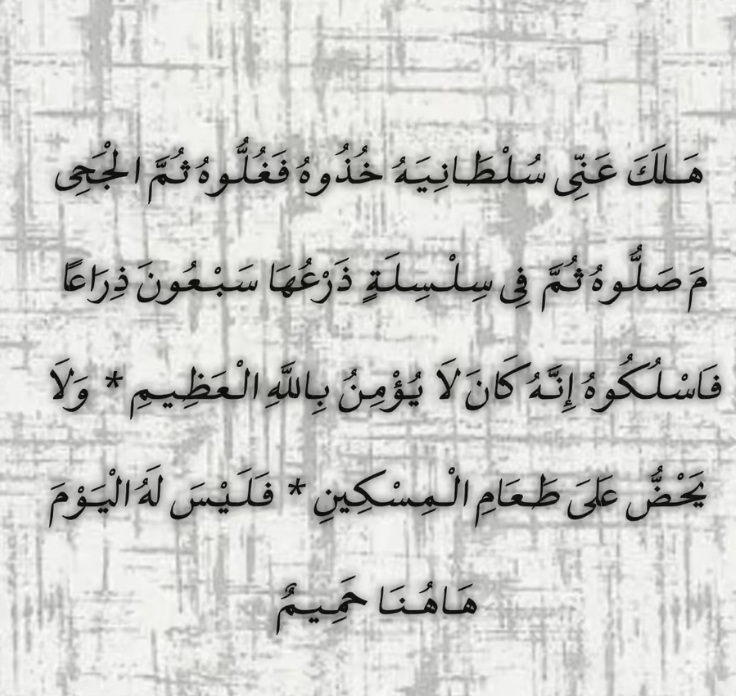 هَلَكَ عَنِّى سُلْطَانِيَهُ خُذُوهُ فَغُلُّوهُ ثُمَّ الْجَحِى
مَ صَلُّوهُ ثُمَّ فِى سِلْسِلَةٍ ذَرْعُهَا سَبْعُونَ ذِرَاعًا
فَاسْلُكُوهُ إِنَّهُ كَانَ لَا يُؤْمِنُ بِاللَّهِ الْعَظِيمِ * وَلَا
يَحْضُّ عَلَى طَعَامِ الْمِسْكِينِ * فَلَيْسَ لَهُ الْيَوْمَ
هَاهُنَا حَمِيمٌ